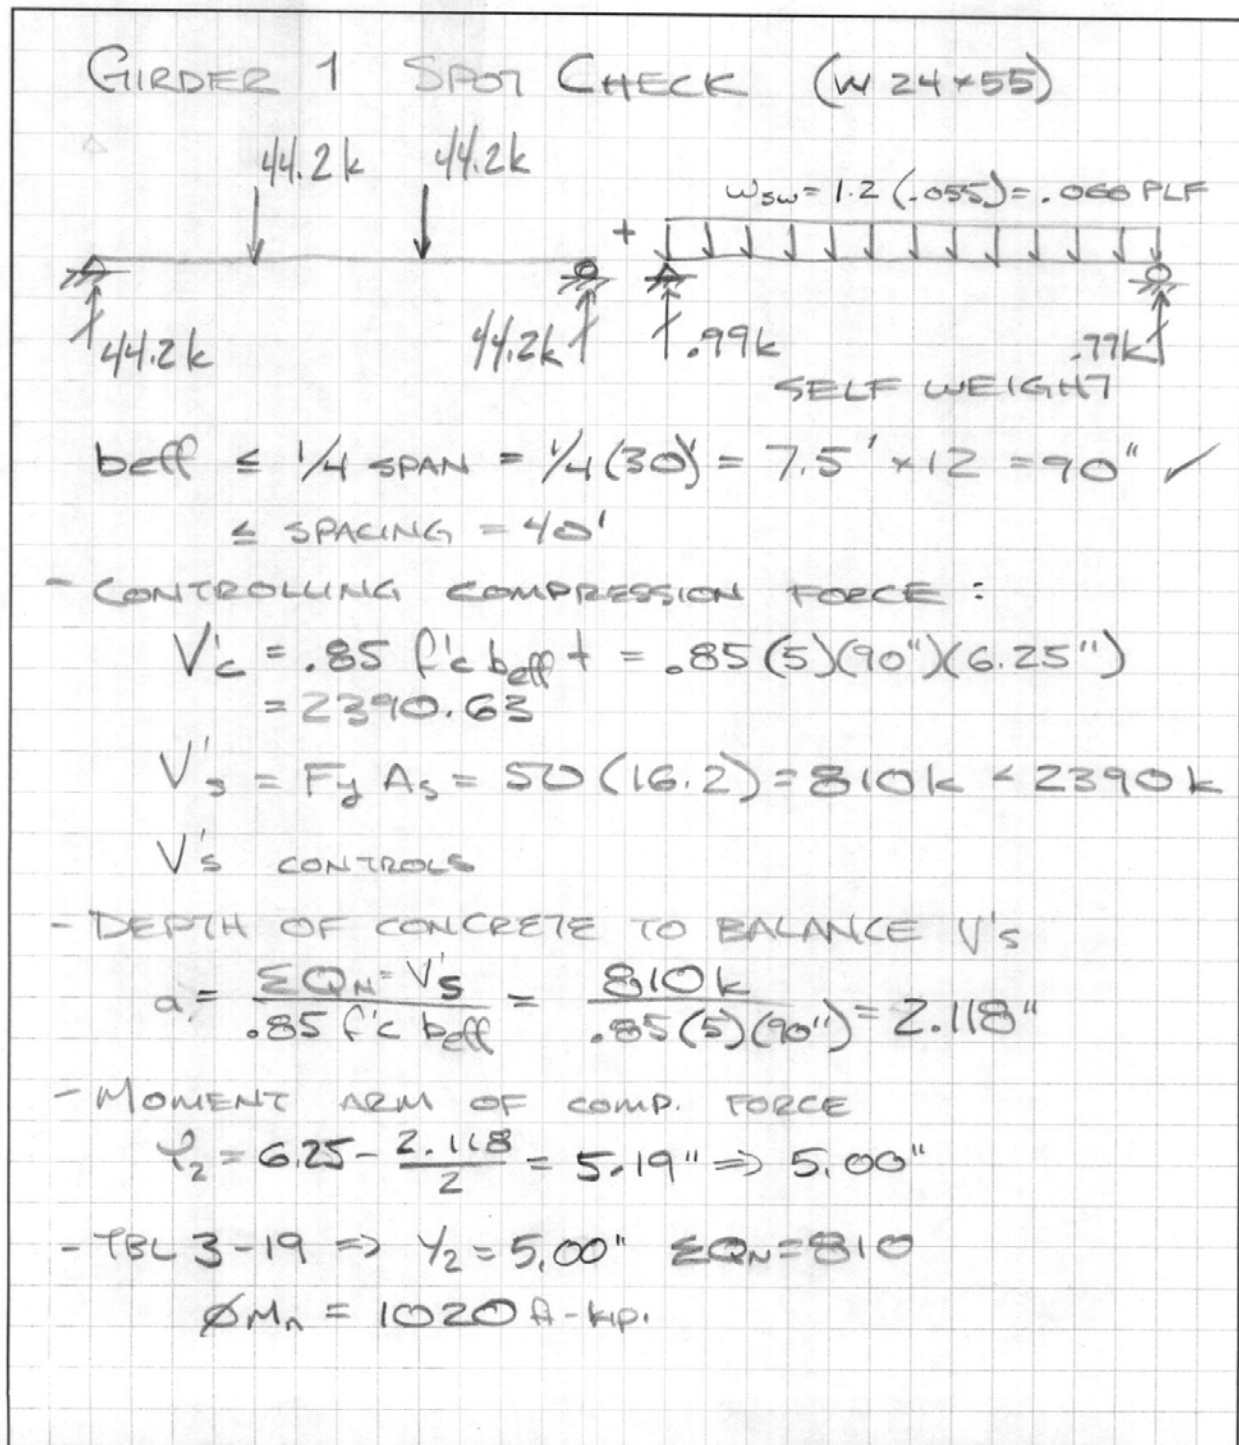 GIRDER 1 SPOT CHECK (W 24×55)
44.2k 44.2k
wsw = 1.2 (.055) = .066 PLF
+
44.2k 44.2k .99k .99k
SELF WEIGHT
beff ≤ 1/4 SPAN = 1/4 (30') = 7.5' × 12 = 90" ✓
≤ SPACING = 40'
- CONTROLLING COMPRESSION FORCE :
V'c = .85 f'c beff t = .85 (5)(90")(6.25")
= 2390.63
V's = Fy As = 50 (16.2) = 810k < 2390k
V's CONTROLS
- DEPTH OF CONCRETE TO BALANCE V's
a = ΣQN = V's / .85 f'c beff = 810k / .85(5)(90") = 2.118"
- MOMENT ARM OF COMP. FORCE
Y2 = 6.25 - 2.118 / 2 = 5.19" ⇒ 5.00"
- TBL 3-19 ⇒ Y2 = 5.00" ΣQN = 810
ØMn = 1020 ft-kip.